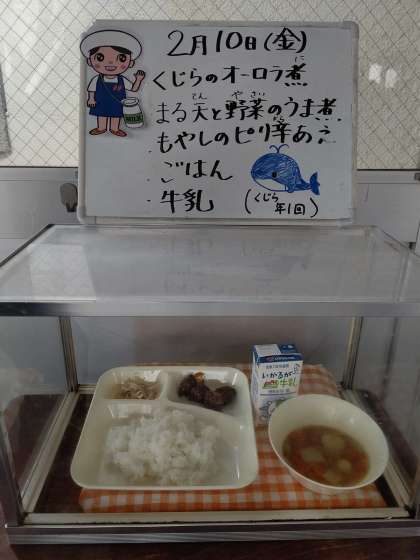 2月10日(金)
くじらのオーロラ煮
に
まる天と野菜のうま煮
てん やさい に
もやしのピリ辛あえ
から
ごはん
牛乳
(くじら
年1回)
MILK
いかるが
牛乳